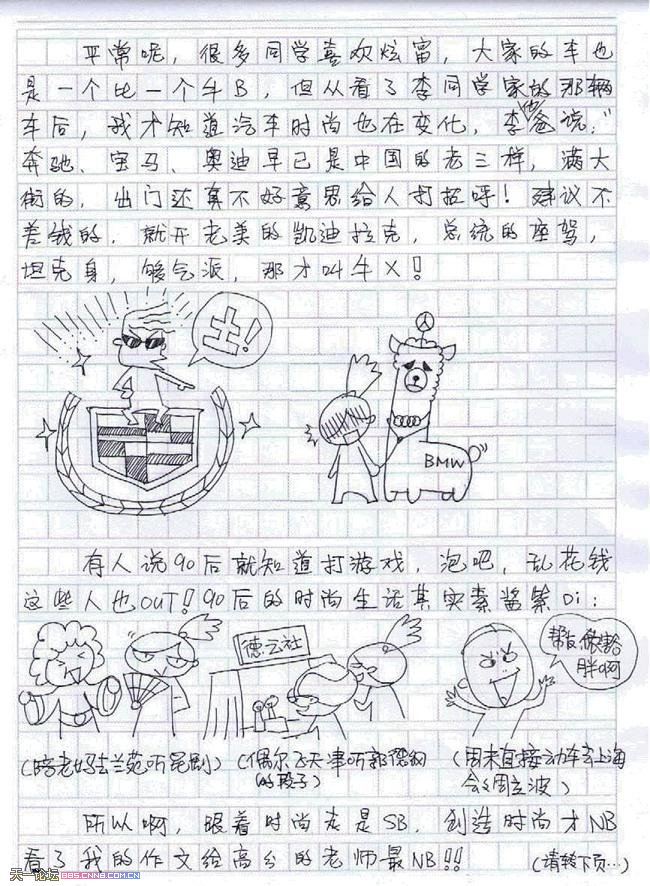 平常呢，很多同学喜欢炫富，大家的车也
是一个比一个牛B，但从看了李同学家的那辆
车后，我才知道汽车时尚也在变化，李他爸说，"
奔驰、宝马、奥迪早已是中国的老三样，满大
街的，出门还真不好意思给人打招呼！建议不
差钱的，就开老美的凯迪拉克，总统的座驾，
坦克身，够气派，那才叫牛X！
土！
BMW
有人说90后就知道打游戏，泡吧，乱花钱
这些人也OUT！90后的时尚生活其实素酱紫Di：
德云社
胖啊
（陪老妈去兰苑听昆剧）
（偶尔飞天津听郭德纲
的段子）
（周末直接动车去上海
会会周立波）
所以啊，跟着时尚走是SB，创造时尚才NB
看了我的作文给高分的老师最NB!!
（请转下页…）
天一论坛 BBS.CNNB.COM.CN